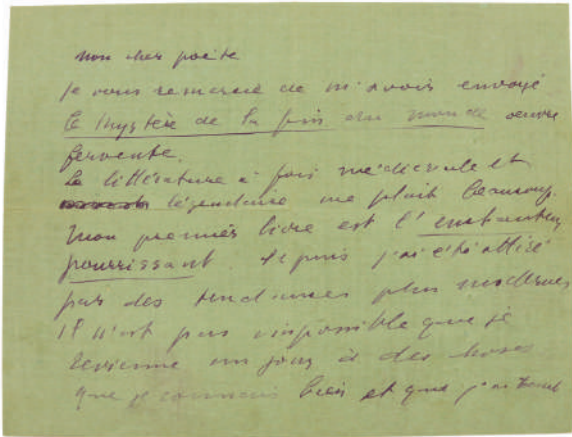 mon cher poète
je vous remercie de m'avoir envoyé
le Mystère de la fin du monde œuvre
fervente.
La littérature à fois médiévale et
légendaire me plait beaucoup.
mon premier livre est l'enchanteur
pourrissant depuis j'ai été attiré
par des tendances plus modernes
il n'est pas impossible que je
revienne un jour à des choses
que je connais bien et que j'ai